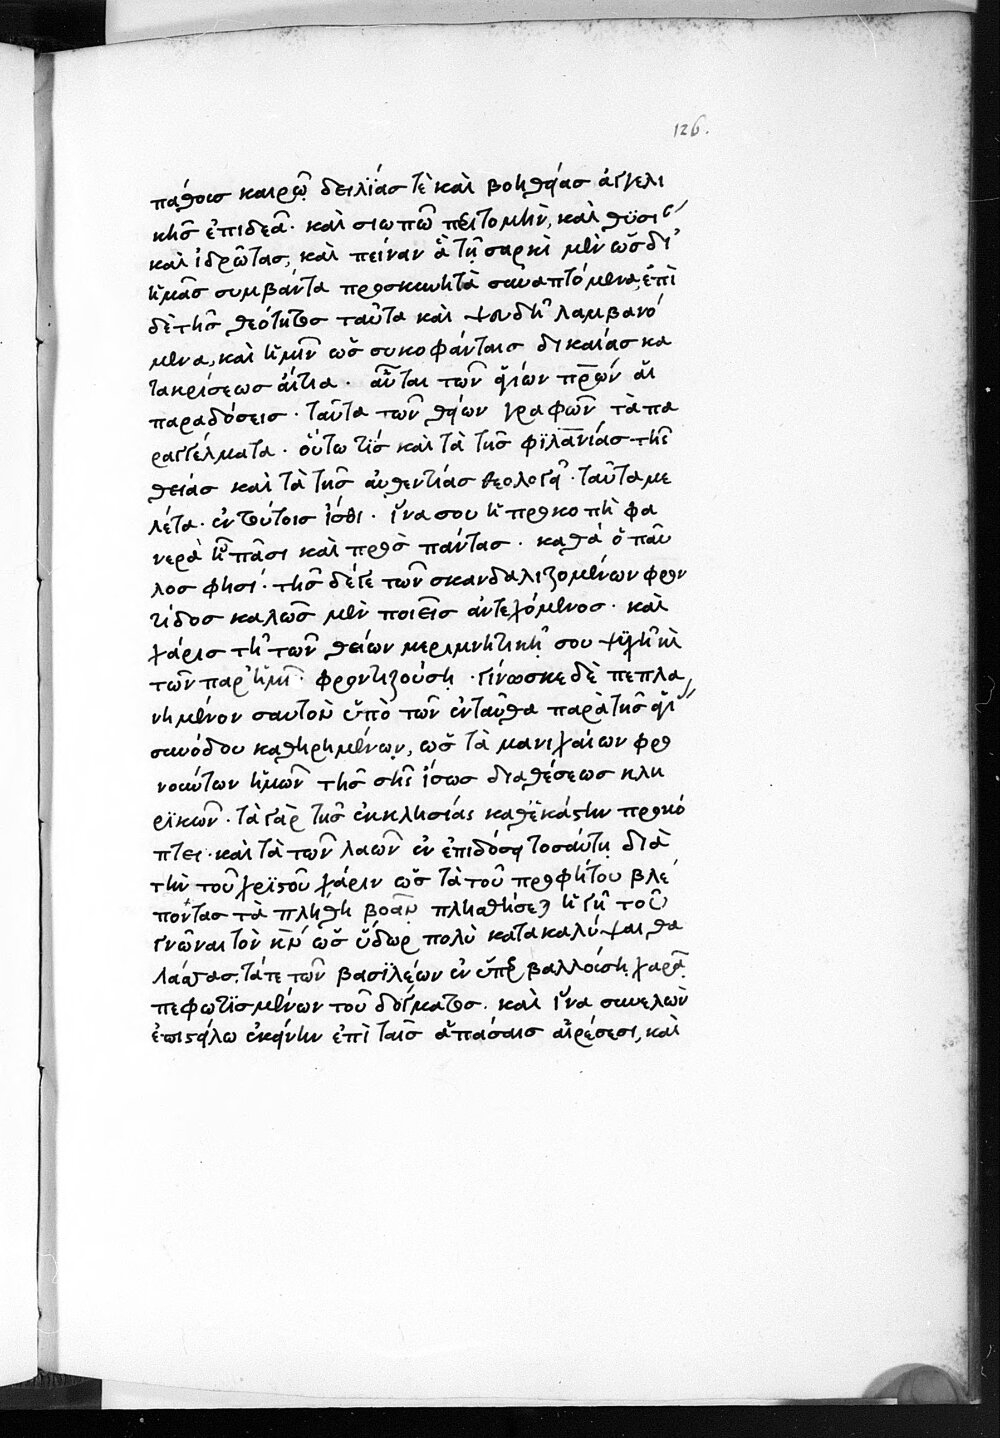 126.
πάθοις καιρῷ δειλίας τὲ καὶ βοηθείας ἀγγελι
κῆς ἐπιδεᾶ· καὶ σιωπῶ περιτομὴν, καὶ θϋσί
καὶ ἱδρῶτας, καὶ πείναν ἃ τῇ σαρκὶ μὲν ὡς δι
ἡμᾶς συμβάντα προσκυνητὰ συναπτόμενα, ἐπὶ
δὲ τῆς θεότητος ταῦτα καὶ ψευδῆ λαμβανό
μενα, καὶ ἡμῖν ὡς συκοφάνταις δικαίας κα
τακρίσεως αἴτια· αὗται τῶν ἁγίων πρων αἱ
παραδόσεις· ταῦτα τῶν θείων γραφῶν τὰ πα
ραγγέλματα· οὕτω τίς καὶ τὰ τῆς φιλανίας τῆς
θείας καὶ τὰ τῆς αὐθεντίας θεολογεῖ· ταῦτα με
λέτα· ἐν τούτοις ἴσθι· ἵνα σου ἡ προκοπὴ φα
νερὰ ᾖ πᾶσι καὶ πρὸς πάντας· καθὰ ὁ παῦ
λος φησί· τῆς δέ γε τῶν σκανδαλιζομένων φρον
τίδος καλῶς μὲν ποιεῖς ἀντεχόμενος· καὶ
χάρις τῇ τῶν θείων μεριμνητικῇ σου ψυχῇ κὶ
τῶν παρ' ἡμῖν φροντιζούσῃ· γίνωσκε δὲ πεπλα
νημένον σαυτὸν ὑπὸ τῶν ἐνταῦθα παρὰ τῆς ἁγί
συνόδου καθηρημένων, ὡς τὰ μανιχαίων φρο
νούντων ἡμῶν τῆς σῆς ἴσως διαθέσεως κλη
ρϊκῶν· τὰ γὰρ τῆς ἐκκλησίας καθ' ἑκάστην προκό
πτει· καὶ τὰ τῶν λαῶν ἐν ἐπιδόσει τοσαύτῃ διὰ
τὴν τοῦ χριστοῦ χάριν ὡς τὰ τοῦ προφήτου βλέ
ποντας τὰ πλήθη βοᾶν πληθήσει ἡ γῆ τοῦ
γνῶναι τὸν κν ὡς ὕδωρ πολὺ κατακαλύψαι θα
λάσσας· τά τε τῶν βασιλέων ἐν ὑπερβαλλούσῃ χαρᾷ
πεφωτϊσμένων τοῦ δόγματος· καὶ ἵνα συνελὼν
ἐπιστείλω ἐκείνην ἐπὶ ταῖς ἁπάσαις αἱρέσεσι, καὶ